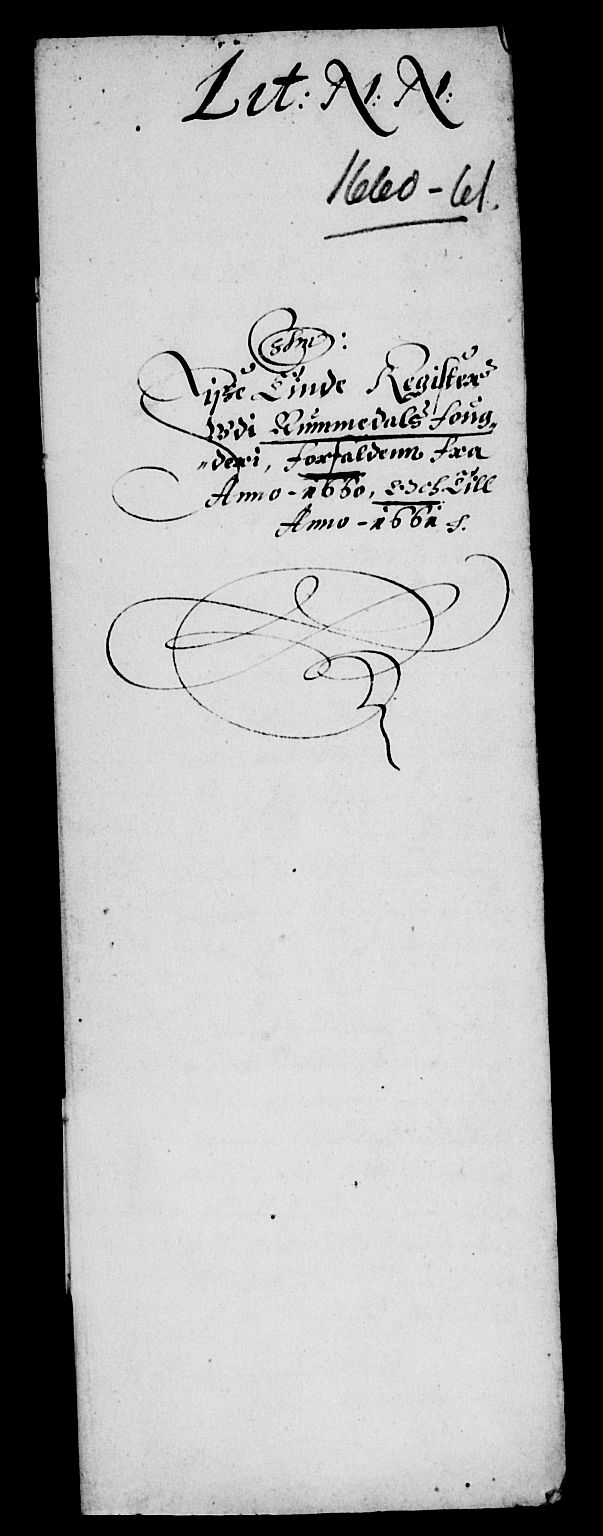 Lit: N: N:
1660-61.
Tiende Register
Udi Nummedals foug„
„deri, forfaldenn fra
Anno-1660, Och Till
Anno-1661